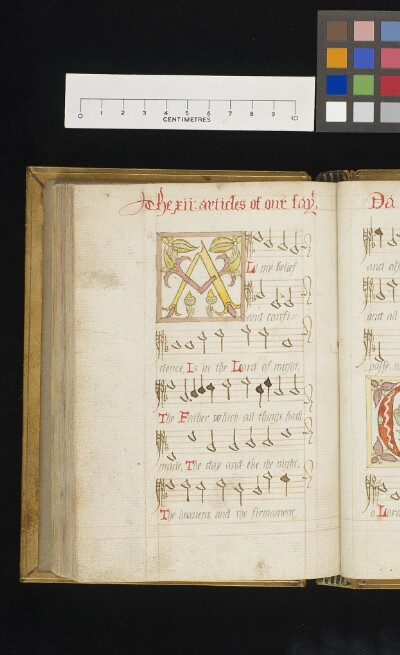 0 1 2 3 4 5 6 7 8 9 10
CENTIMETRES
The xii: articles of our fayt.
A
Ll my belief
and confi-
dence, Is in the Lord of might,
The Father which all things hath
made, The day and eke the night,
The heavens and the firmament,
Da
and all
o Lord